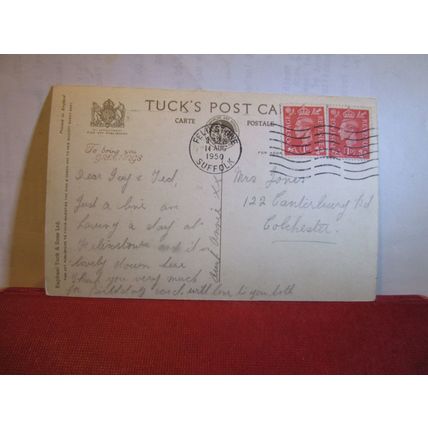 TUCK'S POST CA
CARTE POSTALE
FELIXSTOWE
14 AUG
1950
SUFFOLK
To bring you
greetings
Dear Guy & Ted,
Just a line am
having a day at
Felixstowe and it is
lovely down here
Thank you very much
for Birthday card, with love to you both
Aunt Annie xx
Mrs Jones
122 Canterbury Rd
Colchester
Raphael Tuck & Sons Ltd.
Printed in England